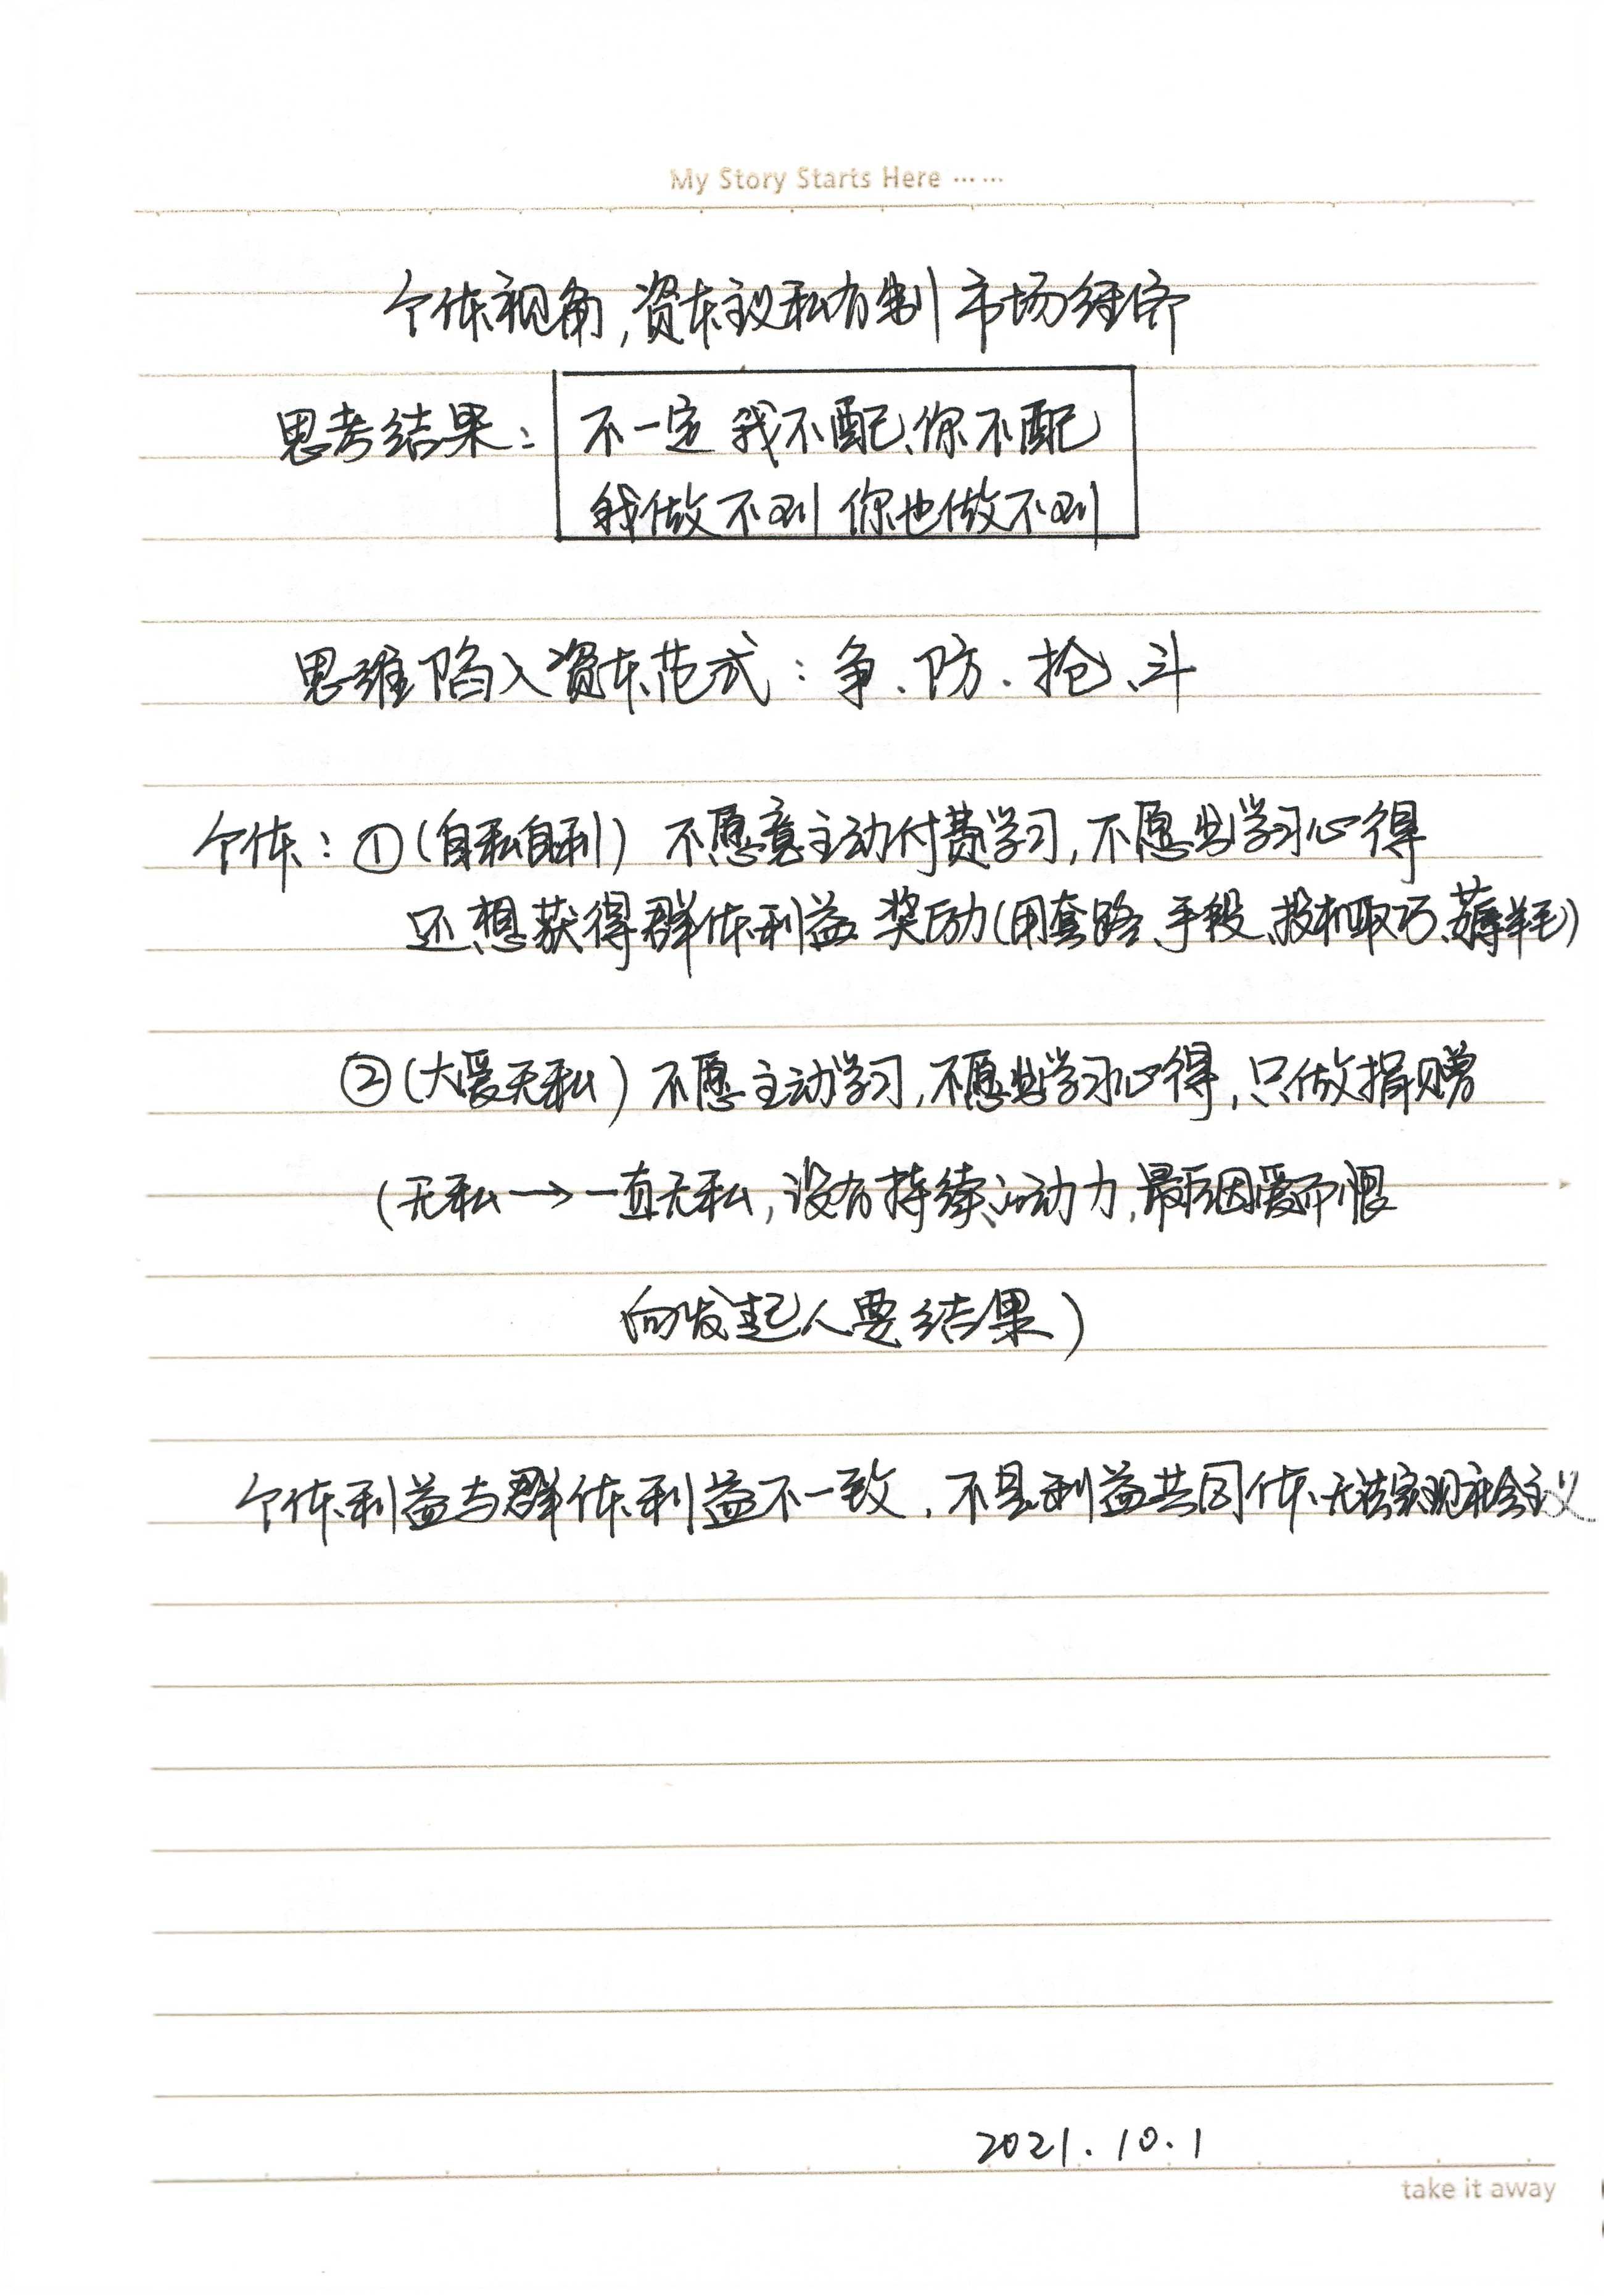 My Story Starts Here ……
个体视角,资本主义私有制市场经济
思考结果: 不一定 我不配、你不配
我做不到 你也做不到
思维陷入资本范式:争、防、抢、斗
个体:①(自私自利)不愿意主动付费学习,不愿出学习心得
还想获得群体利益奖励(用套路、手段、投机取巧、薅羊毛)
②(大爱无私)不愿主动学习,不愿出学习心得,只做捐赠
(无私→一直无私,没有持续心动力,最后因爱而恨
向发起人要结果)
个体利益与群体利益不一致,不是利益共同体、无法实现社会主义
2021.10.1
take it away